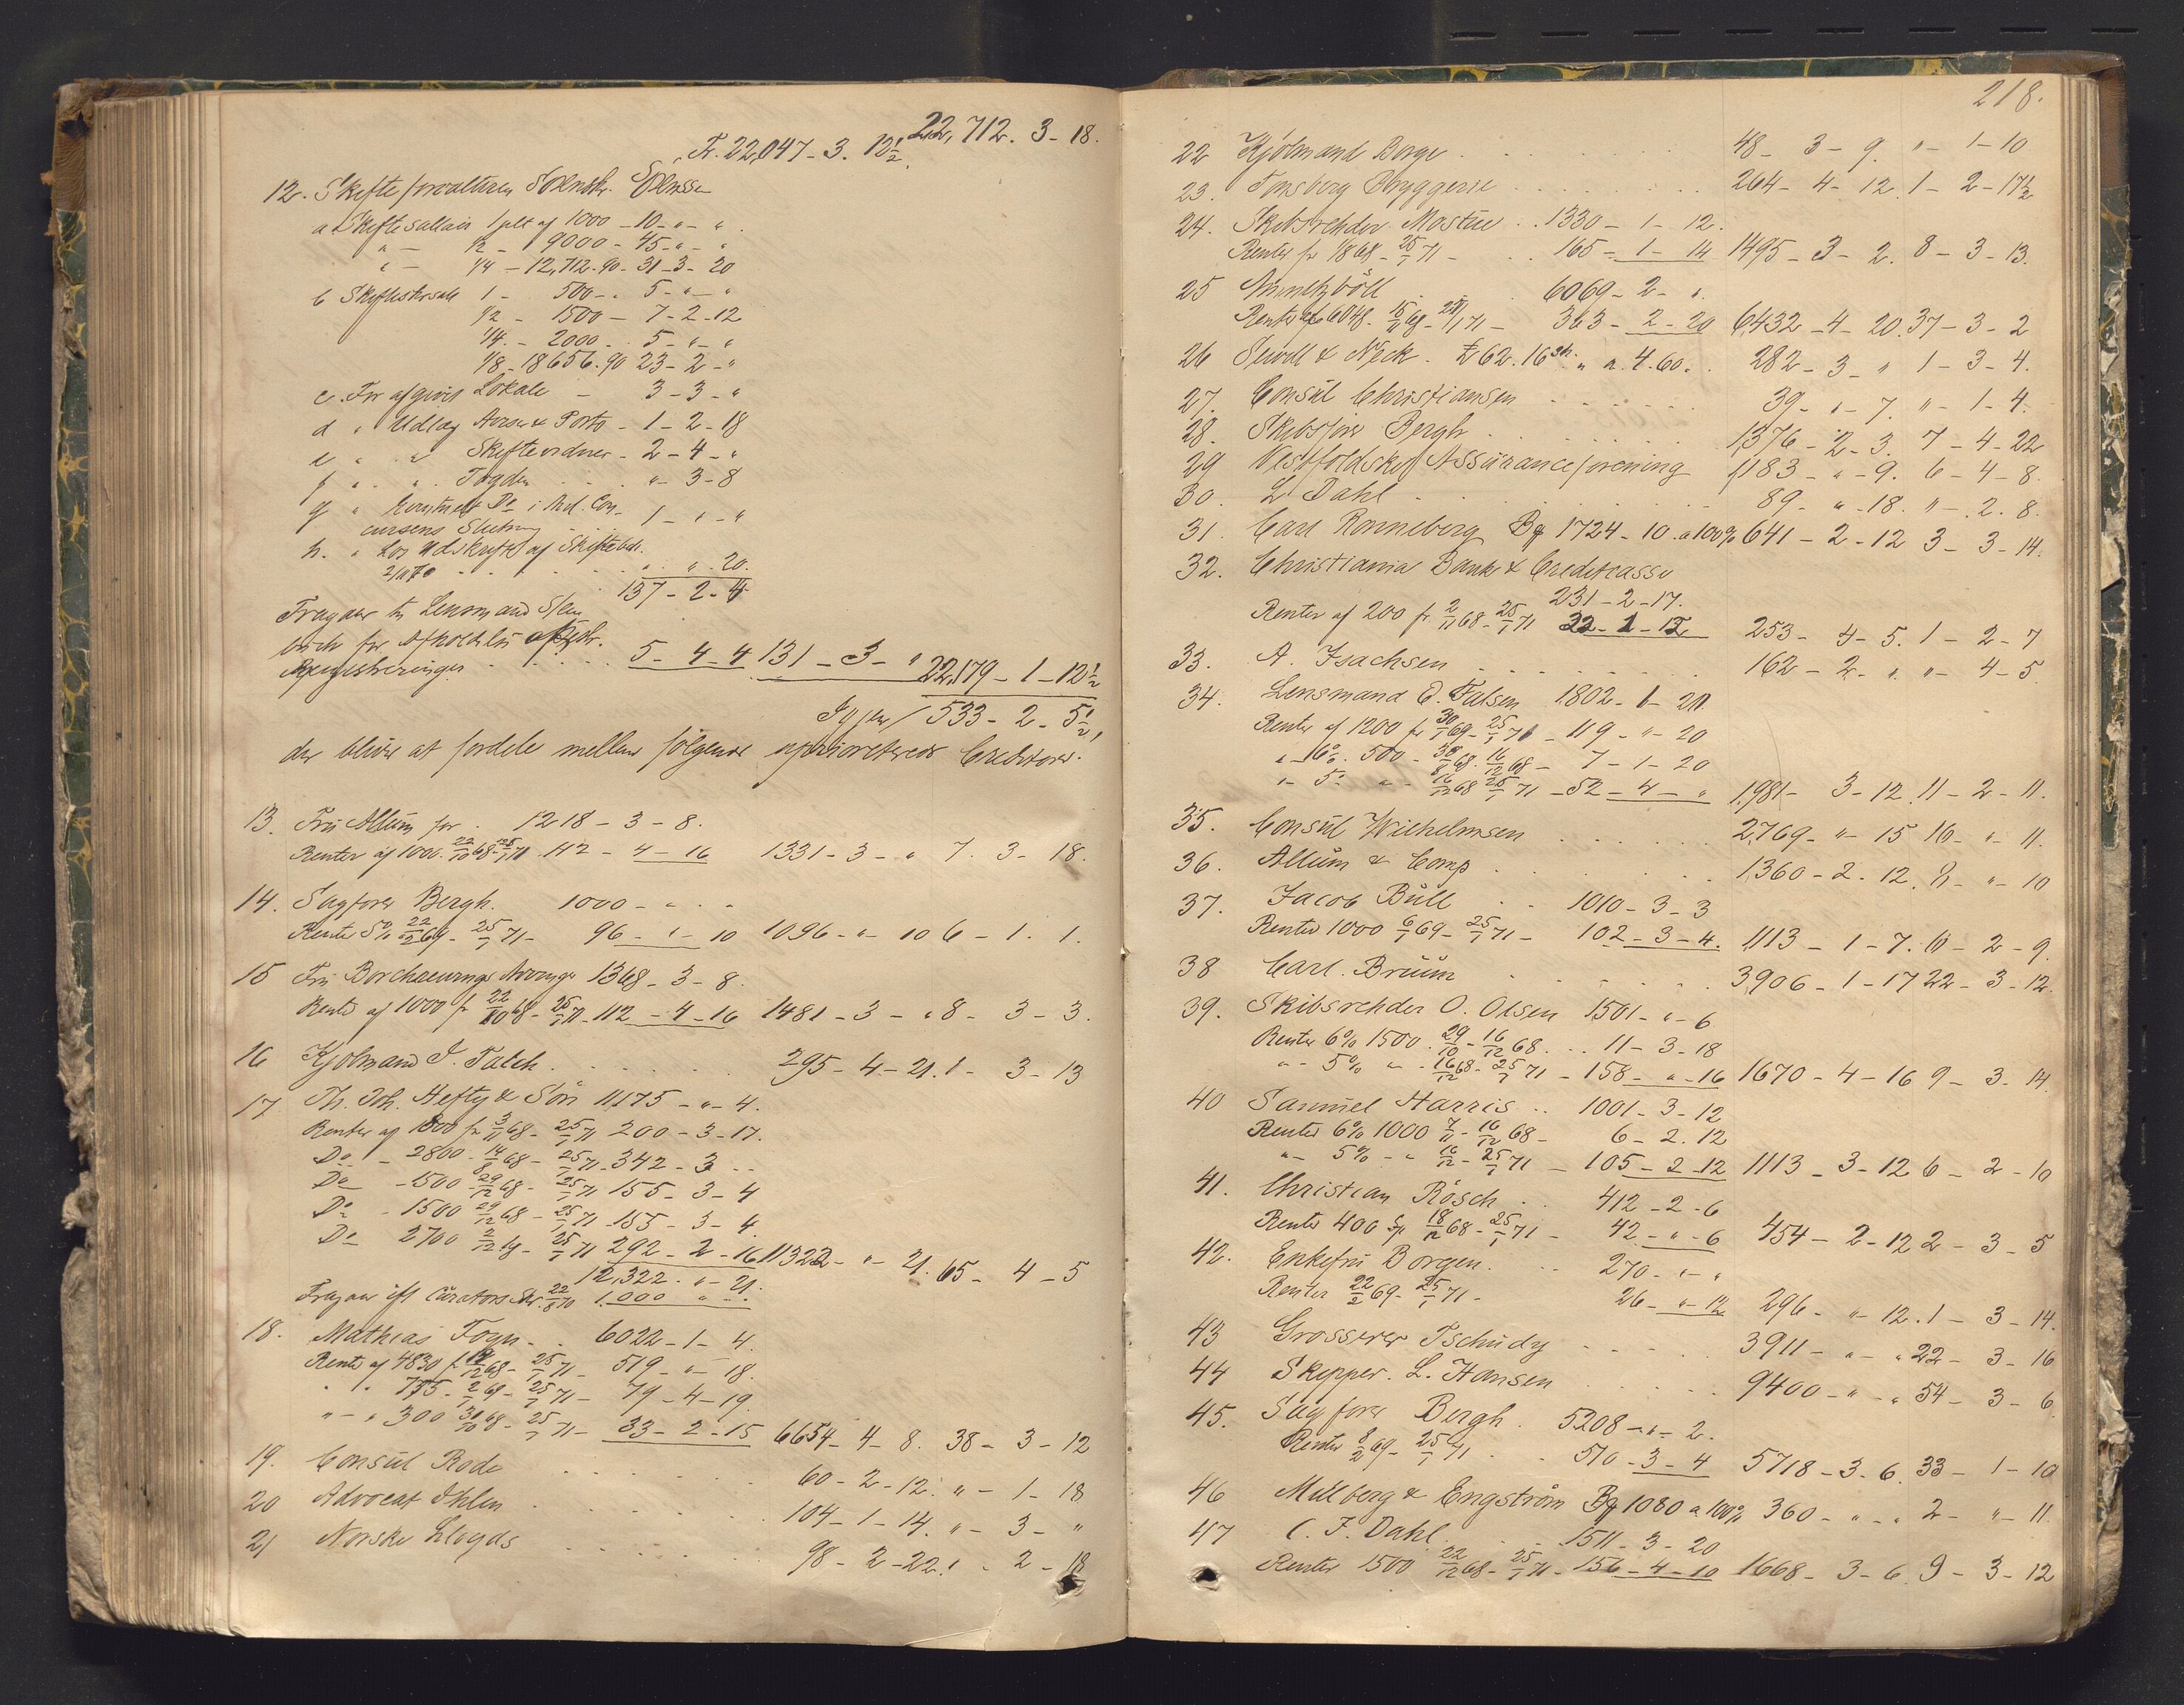 22,712. 3-18.
Tr. 22,047-3. 12½.
12. Skifteforvalteren
a Skiftesallair 1 pct af 1000 - 10 - " - "
" - ½ - 9000 - 45 - " - "
" - 1/4 - 12,712.90 - 31 - 3 - 20
b 1 - 500 - . 5 - " - "
½ - 1500 - 7 - 2 - 12
1/4. - 2000 - . 5 - " - "
1/8 - 18656.90 23 - 2 - "
c. For afgivet Lokale - 3 - 3 - "
d " Udlæg & Porto - 1 - 2 - 18
e " " - 2 - 4 - "
f " . " . . . " - 3 - 8
g " Do i Con-
cursens Slutning 1 - " - "
h. " Udskrift af
. . . . " . " . 20.
137 - 2 - 4
Fragaar til Lensmand Stein
bech for af
Registreringer . . . . 5 - 4 - 4 131 - 3 - " 22,179 - 1 - 12½
Igjen / 533 - 2 - 5½,
der bliver at fordele mellem følgende uprioriterede Creditorer.
13. Fru Allum for . 1218 - 3 - 8.
Renter af 1000. 22/10 68 - 25/1 71 . 112 - 4 - 16 1331 - 3 - " 7. 3 - 18.
14. Sagfører Bergh. 1000 - " . "
Rente 5% 22/2 69 - 25/1 71 - 96 - " - 10 1096 - " - 10 6 - 1. 1.
15 Fru 1368 - 3 - 8.
Rente af 1000 fr 22/10 68 - 25/1 71 - 112 - 4 - 16 1481 - 3 - " 8 - 3 - 3.
16 Kjøbmand J. Falch . . . . 295 - 4 - 21. 1 - 3 - 13
17 Th. Joh. Heftye & Søn 11,175 - " - 4.
Renter af 1800 fr 3/11 68 - 25/1 71 200 - 3 - 17.
Do - 2800 - 14/8 68 - 25/1 71 . 342 - 3 - -
Do - 1500 29/12 68 - 25/1 71 155 - 3 - 4
Do - 1500 29/12 68 - 25/1 71 . 155 - 3 - 4.
Do 2700 2/12 68 - 25/1 71 292 - 2 - 16 11322 - " - 21. 65 - 4 - 5
12,322 . " - 21.
Fragaar ift Curators 22/8 70 1,000 " - "
18. Mathias Foyn - . . 6022 - 1 - 4.
Rente af 4830 fr 12/12 68 - 25/1 71 - 519 - " - 18.
" . 775 - 2/1 69 - 25/1 71 - 79 - 4 - 19.
" - " 300 31/10 68 - 25/1 71 - 33 - 2 - 15 6654 - 4 - 8. 38 - 3 - 12
19. Consul Rode . . . . 60 - 2 - 12. " - 1 - 18
20 Advocat Ihlen . . . . 104 - 1 - 14. " - 3 - "
21 Norske Lloyds . . . . 98 - 2 - 22. " - 2 - 18
218.
22 Kjøbmand Borge . . . . 48 - 3 - 9. " - 1 - 10
23. Tønsberg Bryggerie . . . . 264 - 4 - 12. 1 - 2 - 17½
24. Skibsrehder Mostue . . 1330 - 1 - 12.
Renter fr 1/8 68 - 25/1 71 - . . 165 - 1 - 14 1495 - 3 - 2. 8 - 3 - 13.
25 6069 - 2 - ".
Renter af 6048 - 15/11 69 - 25/1 71 - 363 - 2 - 20 6432 - 4 - 20. 37 - 3 - 2
26 & Neck . £ 62. 16 sh. " a. 4.60. . 282 - 3 - " 1 - 3 - 4.
27. Consul Christiansen . . . . 39 - " - 7. " - 1 - 4.
28. Skibsfører Bergh . . . . 1,376 - 2 - 3. 7 - 4 - 22
29 Vestfoldske Assuranceforening 1,183 - " - 9. 6 - 4 - 8.
30. L Dahl . . . . 89 - " - 18. " - 2. 8.
31. Carl Ronneberg Bg 1724 - 10. a 100% 641 - 2 - 12 3 - 3 - 14.
32. Christiania Bank & Creditcasse
231 - 2 - 17.
Renter af 200 fr 2/11 68 - 25/1 71 22 - 1 - 12 253 - 4 - 5. 1 - 2 - 7
33. A. Isachsen . . . . 162 - 2 - " " - 4 - 5.
34. Lensmand O. Falsen 1802 - 1 - 20
Renter af 1200 fr 30/1 69 - 25/1 71 - 119 - " - 20
" - 6% 500 - 30/8 68. 16/12 68 - 7 - 1 - 20
" - 5% " - 16/12 68 25/1 71 - 52 - 4 - " 1,981 - 3 - 12. 11 - 2 - 11.
35. Consul Wilhelmsen . . . . 2,769 - " - 15 16 - " - 11.
36. Allum & Comp . . . . 1,360 - 2 - 12. 8 - " - 10
37. Jacob Bull . . 1010 - 3 - 3
Renter 1000 6/1 69 - 25/1 71 - 102 - 3 - 4. 1,113 - 1 - 7. 6 - 2 - 9.
38 Carl. Bruun . . . . 3,906 - 1 - 17 22 - 3 - 12.
39. Skibsrehder O. Olsen 1501 - " - 6
Renter 6% 1500. 29/10 - 16/12 68. . . 11 - 3 - 18
" - 5% " - 16/12 68 - 25/1 71 - 158 - " - 16 1670 - 4 - 16 9 - 3 - 14.
40 Samuel Harris . . 1001 - 3 - 12
Renter 6% 1000 7/11 - 16/12 68 - 6 - 2. 12
" - 5% - " 16/12 - 25/1 71 - 105 - 2 - 12 1113 - 3 - 12 6 - 2 - 10
41. Christian Rösch . 412 - 2 - 6
Renter 400 fr 18/12 68 - 25/1 71 - 42 - " - 6 454 - 2 - 12 2 - 3 - 5
42. Enkefru Borgen. . . 270 - " - "
Renter 22/2 69 - 25/1 71 - 26 - " - 12 296 - " - 12. 1 - 3 - 14.
43 Grosserer Tschudy . . . . 3911 - " - " 22 - 3 - 16
44 Skipper. L. Hansen . . . . 9400 - " - " 54 - 3 - 6.
45. Sagfører Bergh. 5208 - " - 2.
Renter 8/2 69 - 25/1 71 . . 510 - 3 - 4 5718 - 3 - 6. 33 - 1 - 10
46 Millberg & Engström Bg 1080 a 100% 360 - " - " 2 - " - 11.
47 C. F. Dahl . . 1511 - 3 - 20
Renter 1500 22/12 68 - 25/1 71 - 156 - 4 - 10 1668 - 3 - 6. 9 - 3 - 12